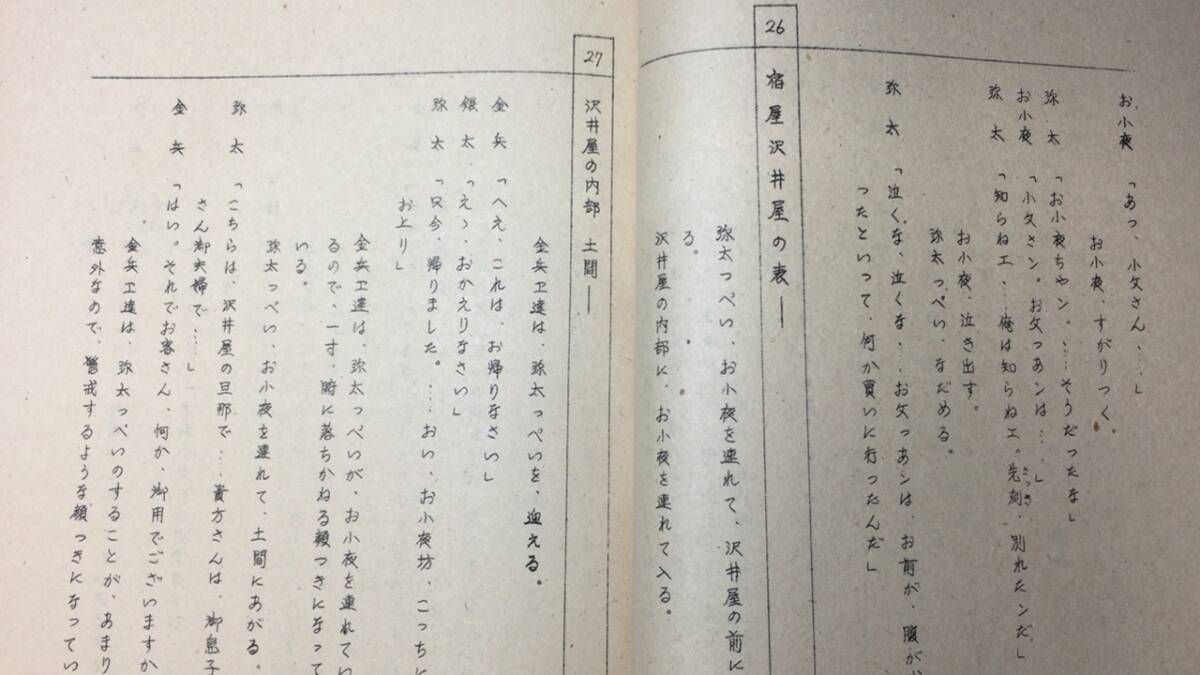 お小夜　「あっ、小父さん、…」
お小夜、すがりつく。
弥　太　「お小夜ちゃン。…そうだったな」
お小夜　「小父さン。お父つあンは…」
弥　太　「知らねエ、…俺は知らねエ。先刻、別れたンだ」
さっき
お小夜、泣き出す。
弥太っぺい、なだめる。
弥　太　「泣くな、泣くな、…お父っあンは、お前が、腹が
ったといって、何か買いに行ったんだ」
26　宿屋沢井屋の表―
弥太っぺい、お小夜を連れて、沢井屋の前に
る。
沢井屋の内部に、お小夜を連れて入る。
27　沢井屋の内部　土間―
金兵ヱ達は、弥太っぺいを、迎える。
金　兵　「へえ、これは、お帰りなさい」
銀　太　「えゝ、おかえりなさい」
弥　太　「只今、帰りました。…おい、お小夜坊、こっちに
お上り」
金兵ヱ達は、弥太っぺいが、お小夜を連れてい
るので、一寸、腑に落ちかねる顔つきになって
いる。
弥太っぺい、お小夜を連れて、土間にあがる。
弥　太　「こちらは、沢井屋の旦那で…貴方さんは、御息子
さん御夫婦で…」
金　兵　「はい。それでお客さん、何か、御用でございますか
金兵ヱ達は、弥太っぺいのすることが、あまり
意外なので、警戒するような顔つきになってい